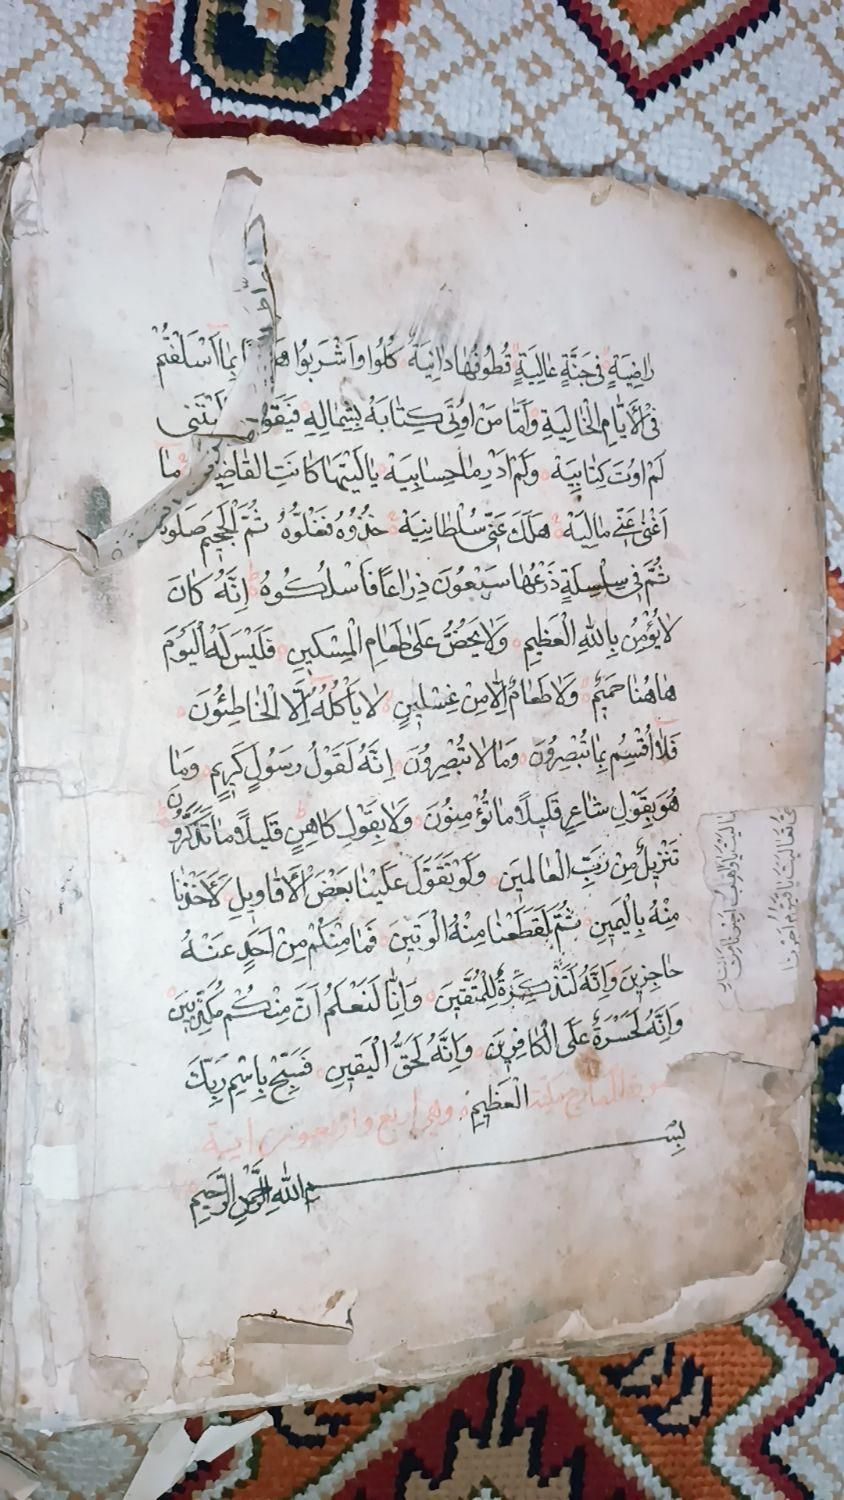 رَاضِيَةٍ فِي جَنَّةٍ عَالِيَةٍ قُطُوفُهَا دَانِيَةٌ كُلُوا وَاشْرَبُوا بِمَا أَسْلَفْتُمْ
فِي الْأَيَّامِ الْخَالِيَةِ وَأَمَّا مَنْ أُوتِيَ كِتَابَهُ بِشِمَالِهِ
لَمْ أُوتَ كِتَابِيَهْ وَلَمْ أَدْرِ مَا حِسَابِيَهْ يَا لَيْتَهَا كَانَتِ الْقَاضِيَةَ مَا
أَغْنَى عَنِّي مَالِيَهْ هَلَكَ عَنِّي سُلْطَانِيَهْ خُذُوهُ فَغُلُّوهُ ثُمَّ الْجَحِيمَ صَلُّوهُ
ثُمَّ فِي سِلْسِلَةٍ ذَرْعُهَا سَبْعُونَ ذِرَاعًا فَاسْلُكُوهُ إِنَّهُ كَانَ
لَا يُؤْمِنُ بِاللَّهِ الْعَظِيمِ وَلَا يَحُضُّ عَلَى طَعَامِ الْمِسْكِينِ فَلَيْسَ لَهُ الْيَوْمَ
هَاهُنَا حَمِيمٌ وَلَا طَعَامٌ إِلَّا مِنْ غِسْلِينٍ لَا يَأْكُلُهُ إِلَّا الْخَاطِئُونَ
فَلَا أُقْسِمُ بِمَا تُبْصِرُونَ وَمَا لَا تُبْصِرُونَ إِنَّهُ لَقَوْلُ رَسُولٍ كَرِيمٍ وَمَا
هُوَ بِقَوْلِ شَاعِرٍ قَلِيلًا مَا تُؤْمِنُونَ وَلَا بِقَوْلِ كَاهِنٍ قَلِيلًا مَا تَذَكَّرُونَ
تَنْزِيلٌ مِنْ رَبِّ الْعَالَمِينَ وَلَوْ تَقَوَّلَ عَلَيْنَا بَعْضَ الْأَقَاوِيلِ لَأَخَذْنَا
مِنْهُ بِالْيَمِينِ ثُمَّ لَقَطَعْنَا مِنْهُ الْوَتِينَ فَمَا مِنْكُمْ مِنْ أَحَدٍ عَنْهُ
حَاجِزِينَ وَإِنَّهُ لَتَذْكِرَةٌ لِلْمُتَّقِينَ وَإِنَّا لَنَعْلَمُ أَنَّ مِنْكُمْ مُكَذِّبِينَ
وَإِنَّهُ لَحَسْرَةٌ عَلَى الْكَافِرِينَ وَإِنَّهُ لَحَقُّ الْيَقِينِ فَسَبِّحْ بِاسْمِ رَبِّكَ
الْعَظِيمِ
سورة المعارج مكية وهي اربع واربعون اية
بِسْمِ اللَّهِ الرَّحْمَنِ الرَّحِيمِ